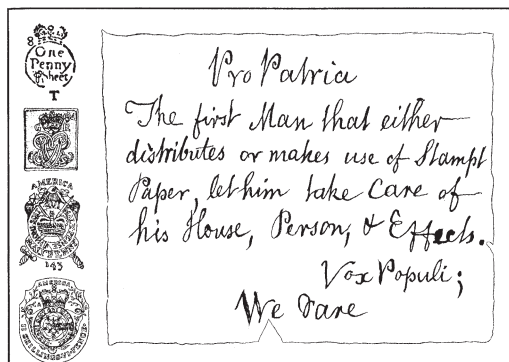 8
One
Penny
Sheet
T
AMERICA
143
AMERICA
Pro Patria
The first Man that either
distributes or makes use of Stampt
Paper, let him take Care of
his House, Person, & Effects.
Vox Populi;
We dare